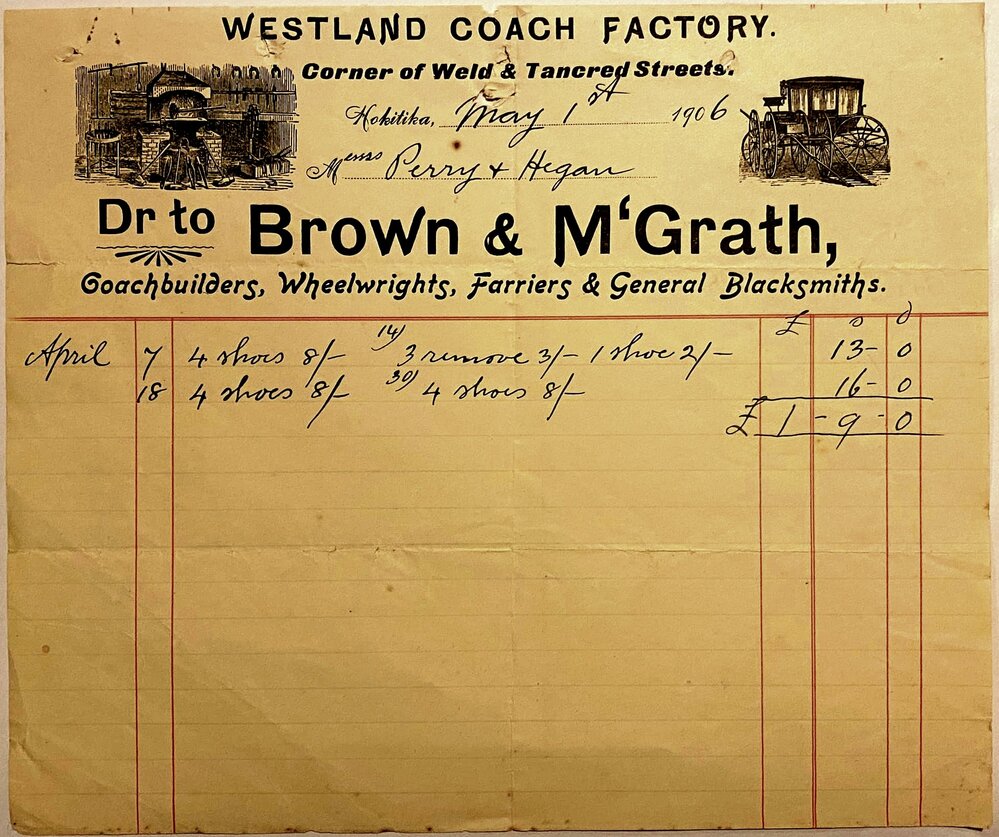 WESTLAND COACH FACTORY.
Corner of Weld & Tancred Streets.
Hokitika, May 1st 1906
Messrs Perry & Hegan
Dr to Brown & M‘Grath,
Coachbuilders, Wheelwrights, Farriers & General Blacksmiths.
£ s d
April 7 4 shoes 8/- 14) 3 remove 3/- 1 shoe 2/- 13 - 0
18 4 shoes 8/- 30) 4 shoes 8/- 16 - 0
£ 1 - 9 - 0